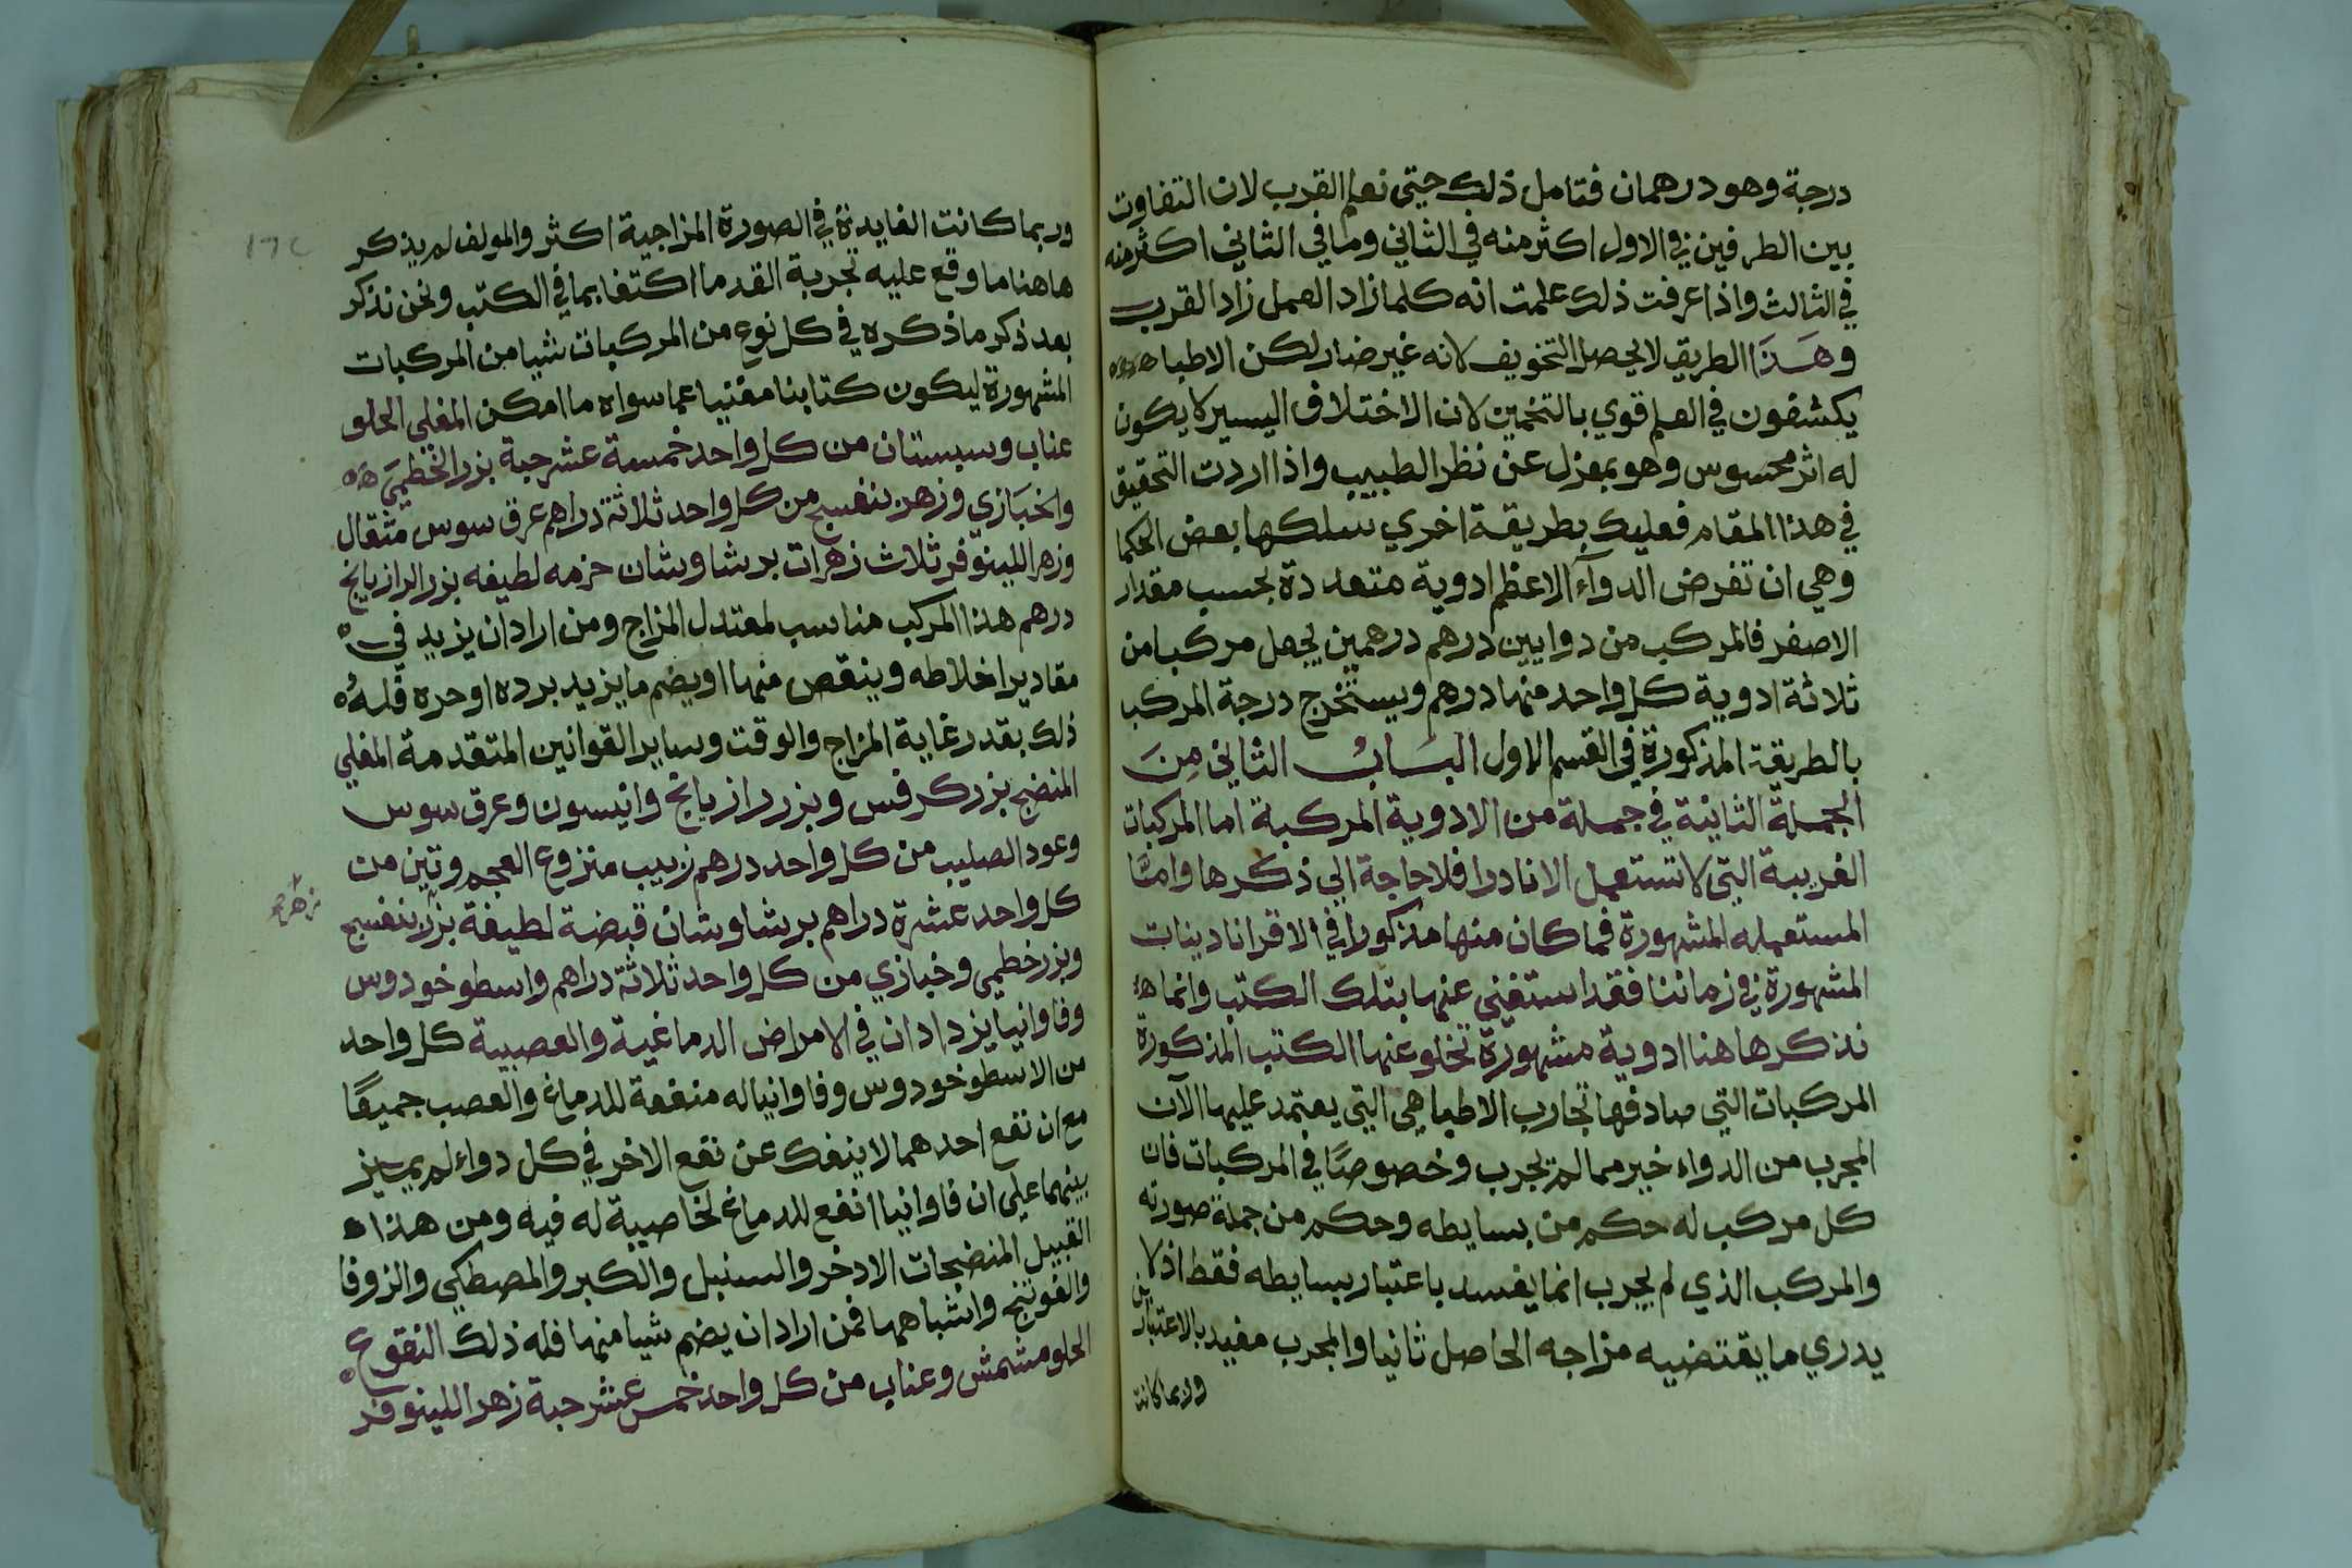 درجة وهو درهمان فتامل ذلك حتى نعلم القرب لان التفاوت
بين الطرفين في الاول اكثر منه في الثاني وما في الثاني اكثر منه
في الثالث واذا عرفت ذلك علمت انه كلما زاد العمل زاد القرب
وهذا الطريق لا يحصل التخويف لانه غير ضار لكن الاطبا
يكشفون في العلم قوي بالتخمين لان الاختلاف اليسير لا يكون
له اثر محسوس وهو بمعزل عن نظر الطبيب واذا اردت التحقيق
في هذا المقام فعليك بطريقة اخري سلكها بعض الحكما
وهي ان تفرض الدوآء الاعظم ادوية متعددة بحسب مقدار
الاصغر فالمركب من دوايين درهم درهمين يجعل مركبا من
ثلاثة ادوية كل واحد منها درهم ويستخرج درجة المركب
بالطريقة المذكورة في القسم الاول الباب الثاني من
الجملة الثانية في جملة من الادوية المركبة اما المركبات
الغريبة التي لا تستعمل الا نادرا فلا حاجة الي ذكرها واما
المستعمله المشهورة فما كان منها مذكورا في الاقراباديnات
المشهورة في زماننا فقد استغني عنها بتلك الكتب وانما
نذكر هاهنا ادوية مشهورة تخلو عنها الكتب المذكورة
المركبات التي صادفها تجارب الاطبا هي التي يعتمد عليها الآن
المجرب من الدواء خير مما لم يجرب وخصوصا في المركبات فان
كل مركب له حكم من بسايطه وحكم من جملة صورته
والمركب الذي لم يجرب انما يفسد باعتبار بسايطه فقط اذ لا
يدري ما يقتضيه مزاجه الحاصل ثانيا والمجرب مفيد بالاعتبارين
وربما كانت
وربما كانت الفايدة في الصورة المزاجية اكثر والمولف لم يذكر
هاهنا ما وقع عليه تجربة القدما اكتفا بما في الكتب ونحن نذكر
بعد ذكر ما ذكره في كل نوع من المركبات شيا من المركبات
المشهورة ليكون كتابنا مغنيا عما سواه ما امكن المغلي الحلو
عناب وسبستان من كل واحد خمسة عشر حبة بزر الخطمي
والخبازي وزهر بنفسج من كل واحد ثلاثة دراهم عرق سوس مثقال
وزهر اللينوفر ثلاث زهرات برشاوشان حزمه لطيفه بزر الرازيانج
درهم هذا المركب مناسب لمعتدل المزاج ومن اراد ان يزيد في
مقادير اخلاطه وينقص منها او يضم ما يزيد برده او حره فله
ذلك بقدر غاية المزاج والوقت وساير القوانين المتقدمة المغلي
المنضج بزر كرفس وبزر رازيانج وانيسون وعرق سوس
وعود الصليب من كل واحد درهم زبيب منزوع العجم وتين من
كل واحد عشرة دراهم برشاوشان قبضة لطيفة بزر بنفسج
زهر
وبزر خطمي وخبازي من كل واحد ثلاثة دراهم واسطوخودوس
وفاوانيا يزدادان في الامراض الدماغية والعصبية كل واحد
من الاسطوخودوس وفاوانيا له منفعة للدماغ والعصب جميعًا
مع ان نفع احدهما لا ينفك عن نفع الاخر في كل دواء لم يميز
بينهما علي ان فاوانيا انفع للدماغ لخاصية له فيه ومن هذا
القبيل المنضجات الادخر والسنبل والكبر والمصطكي والزوفا
والفوتنج واشباهها فمن اراد ان يضم شيا منها فله ذلك النقوع
الحلو مشمش وعناب من كل واحد خمس عشر حبة زهر اللينوفر